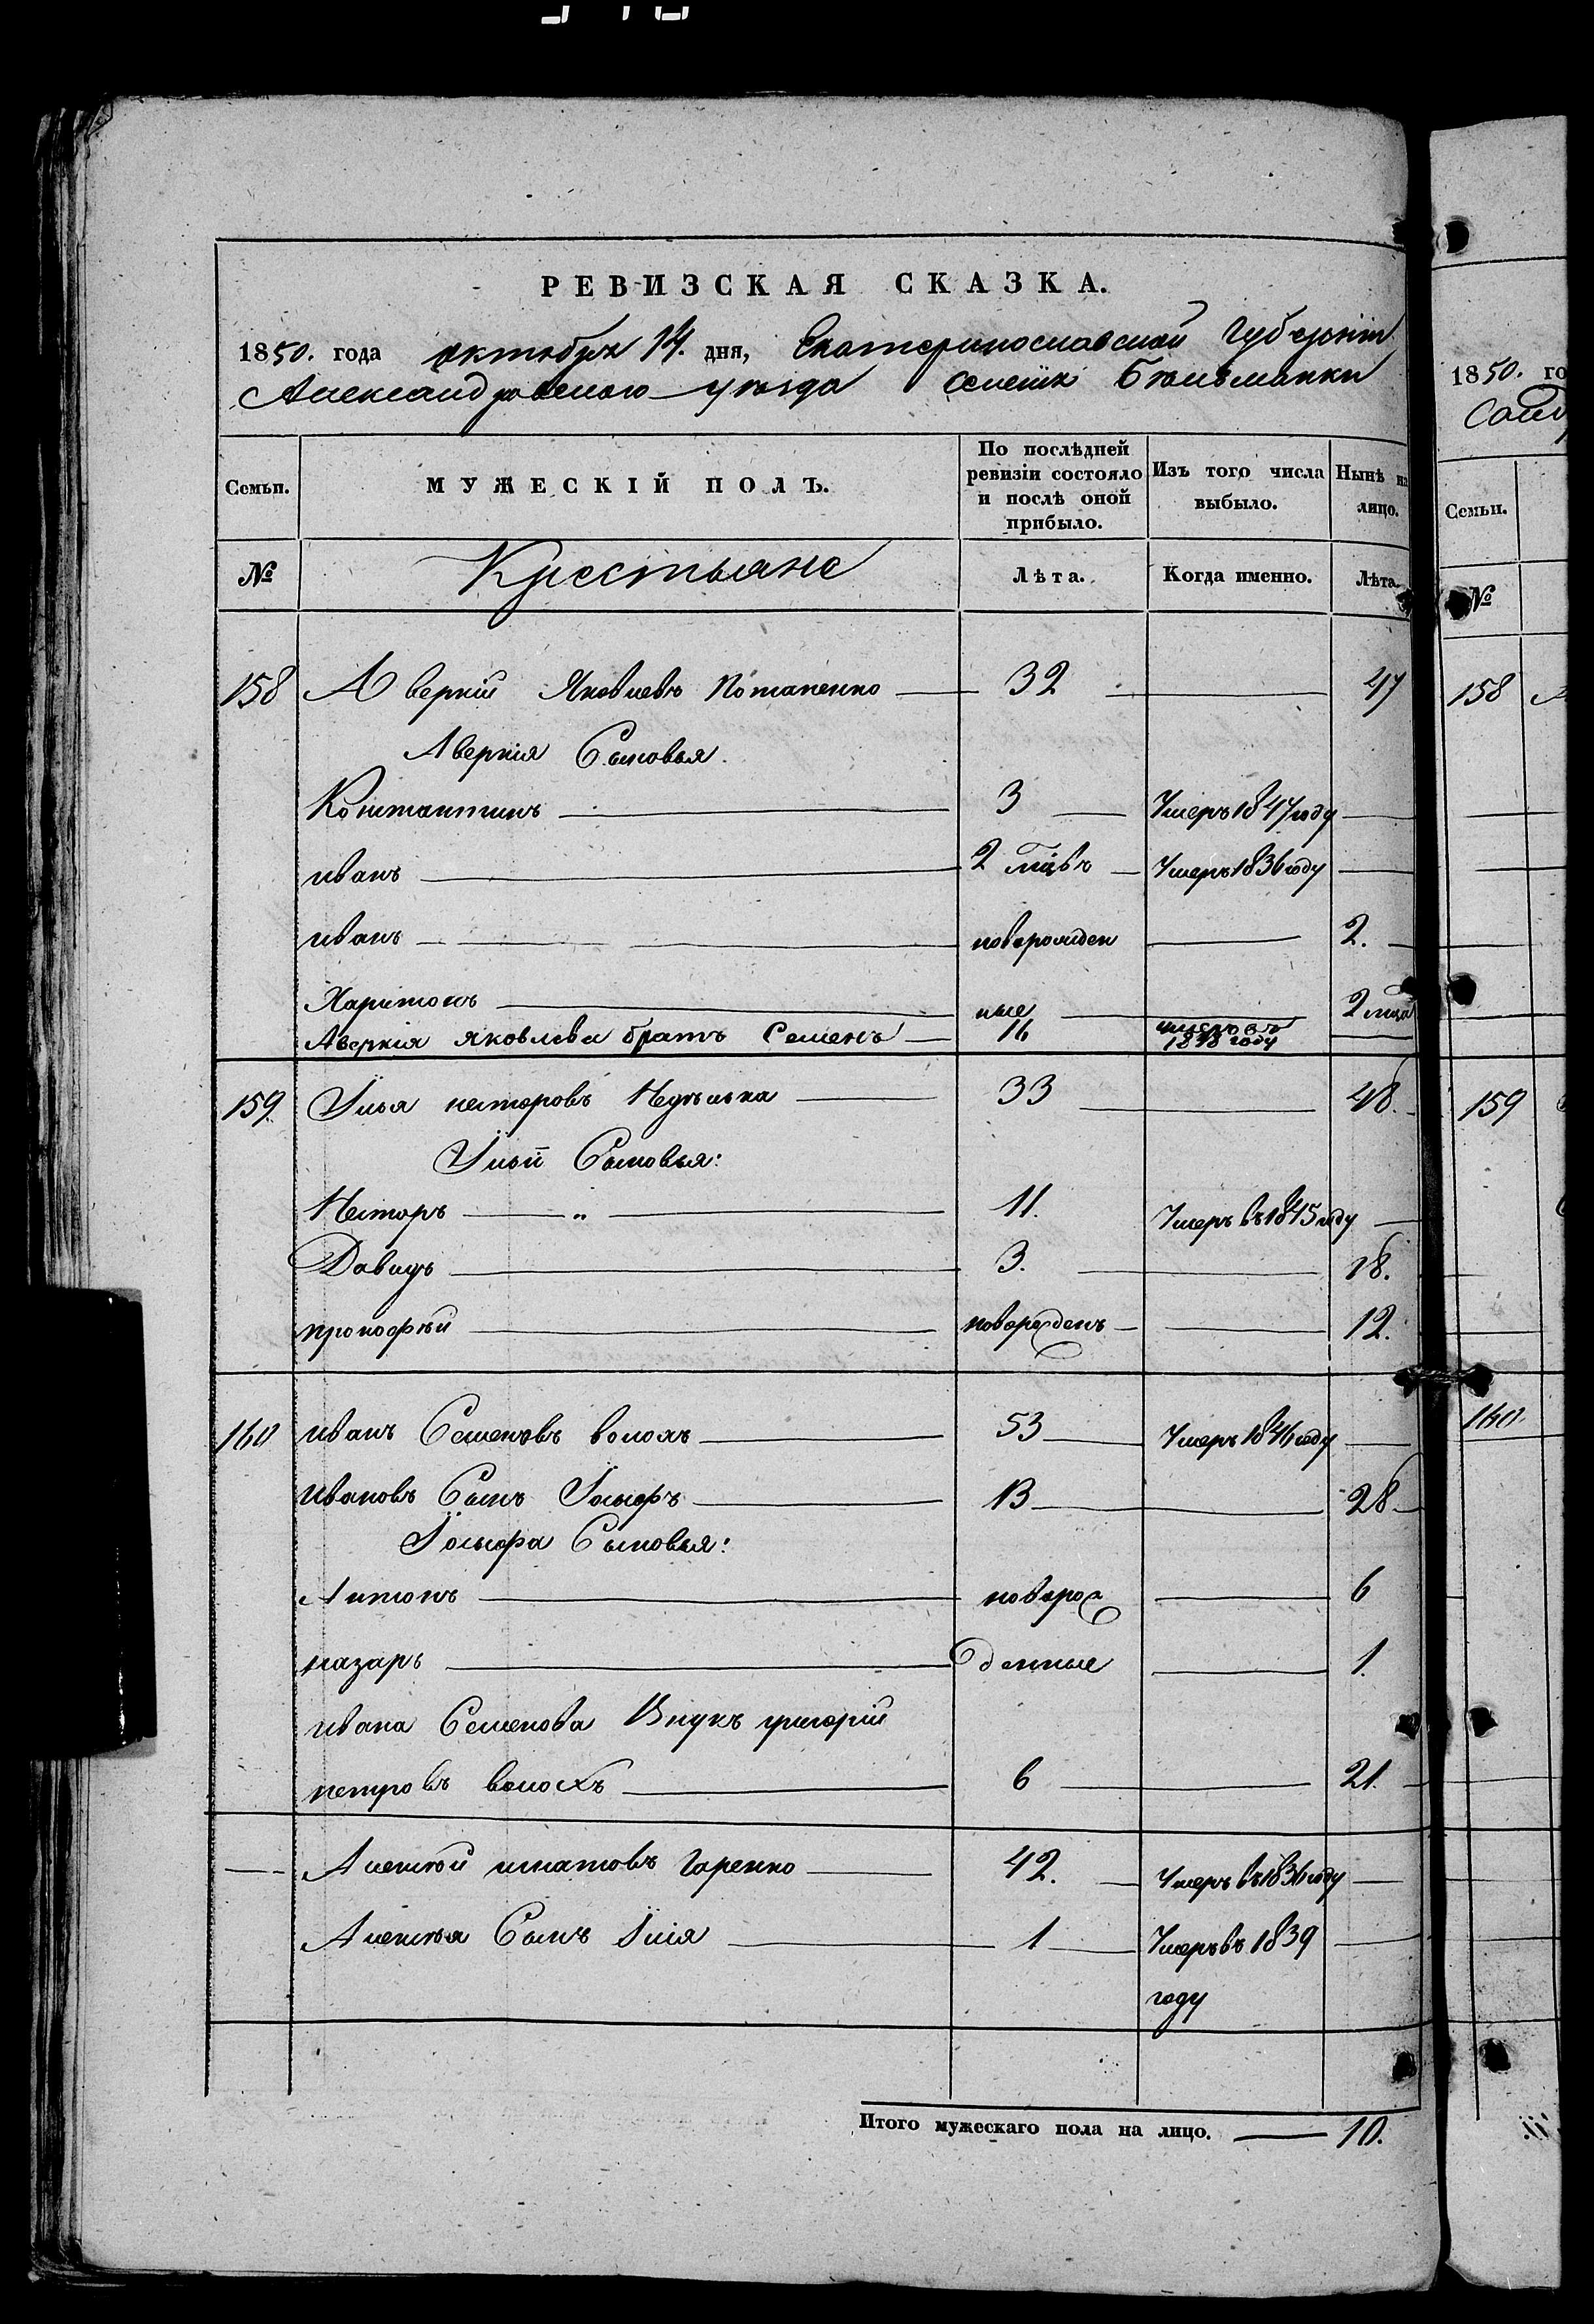 РЕВИЗСКАЯ СКАЗКА.
1850. года октября 14. дня, Екатеринославской Губернiи
Александровского уѣзда Бѣльманки
Семьи. МУЖЕСКIЙ ПОЛЪ. По послѣдней ревизiи состояло и послѣ оной прибыло. Изъ того числа выбыло. Нынѣ на лицо.
№ Крестьяне Лѣта. Когда именно. Лѣта.
158 Аверкiй Яковлевъ Потапенко 32 47
Аверкiя Сыновья.
Константинъ 3 Умеръ 1847 году
иванъ 2 мцвъ Умеръ 1836 году
иванъ новорожден 2.
Харитонъ ные 2 мца
Аверкiя яковлева братъ Семенъ 16 1848 году
159. Илья нестеровъ 33 48.
Ильи Сыновья:
Несторъ " 11. Умеръ въ 1845 году
Давидъ 3. 18.
прокофѣй новорожденъ 12.
160 иванъ Семеновъ волохъ 53 Умеръ 1846 году
ивановъ Сынъ Iосифъ 13 28
Iосифа Сыновья:
Антонъ новорож 6
назаръ денные 1.
ивана Семенова Внукъ григорiй
петровъ волохъ 6 21.
Алексѣй игнатовъ Горенко 42. Умеръ въ 1836 году
Алексѣя Сынъ Илiя 1 Умеръ въ 1839
году
Итого мужескаго пола на лицо. 10.
1850. го
Семьи.
№
158
159
160